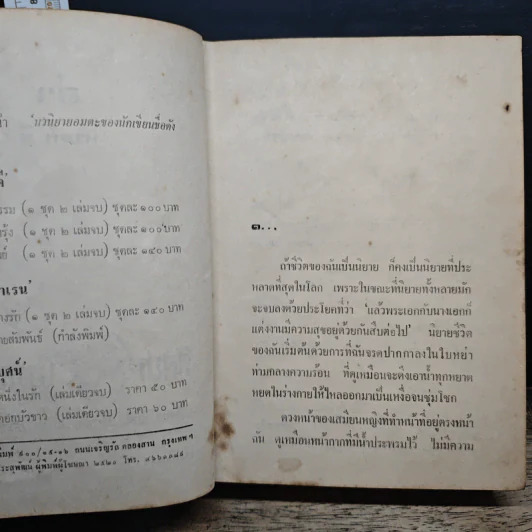 นวนิยายอมตะของนักเขียนชื่อดัง
(๑ ชุด ๒ เล่มจบ) ชุดละ ๑๐๐ บาท
(๑ ชุด ๒ เล่มจบ) ชุดละ ๑๐๐ บาท
(๑ ชุด ๒ เล่มจบ) ชุดละ ๑๔๐ บาท
(๑ ชุด ๒ เล่มจบ) ชุดละ ๑๔๐ บาท
ยสัมพันธ์ (กำลังพิมพ์)
นึ่งในรัก (เล่มเดียวจบ) ราคา ๕๐ บาท
ดอกบัวขาว (เล่มเดียวจบ) ราคา ๖๐ บาท
ถนนเจริญรัถ คลองสาน กรุงเทพ ฯ
ผู้พิมพ์ผู้โฆษณา ๒๕๒๐ โทร.
๑...
ถ้าชีวิตของฉันเป็นนิยาย ก็คงเป็นนิยายที่ประ
หลาดที่สุดในโลก เพราะในขณะที่นิยายทั้งหลายมัก
จะจบลงด้วยประโยคที่ว่า 'แล้วพระเอกกับนางเอกก็
แต่งงานมีความสุขอยู่ด้วยกันสืบต่อไป' นิยายชีวิต
ของฉันเริ่มต้นด้วยการที่ฉันจรดปากกาลงในใบหย่า
ท่ามกลางความร้อน ที่ดูเหมือนจะดึงเอาน้ำทุกหยาด
หยดในร่างกายให้ไหลออกมาเป็นเหงื่อจนชุ่มโชก
ดวงหน้าของเสมียนหญิงที่ทำหน้าที่อยู่ตรงหน้า
ฉัน ดูเหมือนหน้ากากที่มีน้ำประพรมไว้ ไม่มีความ